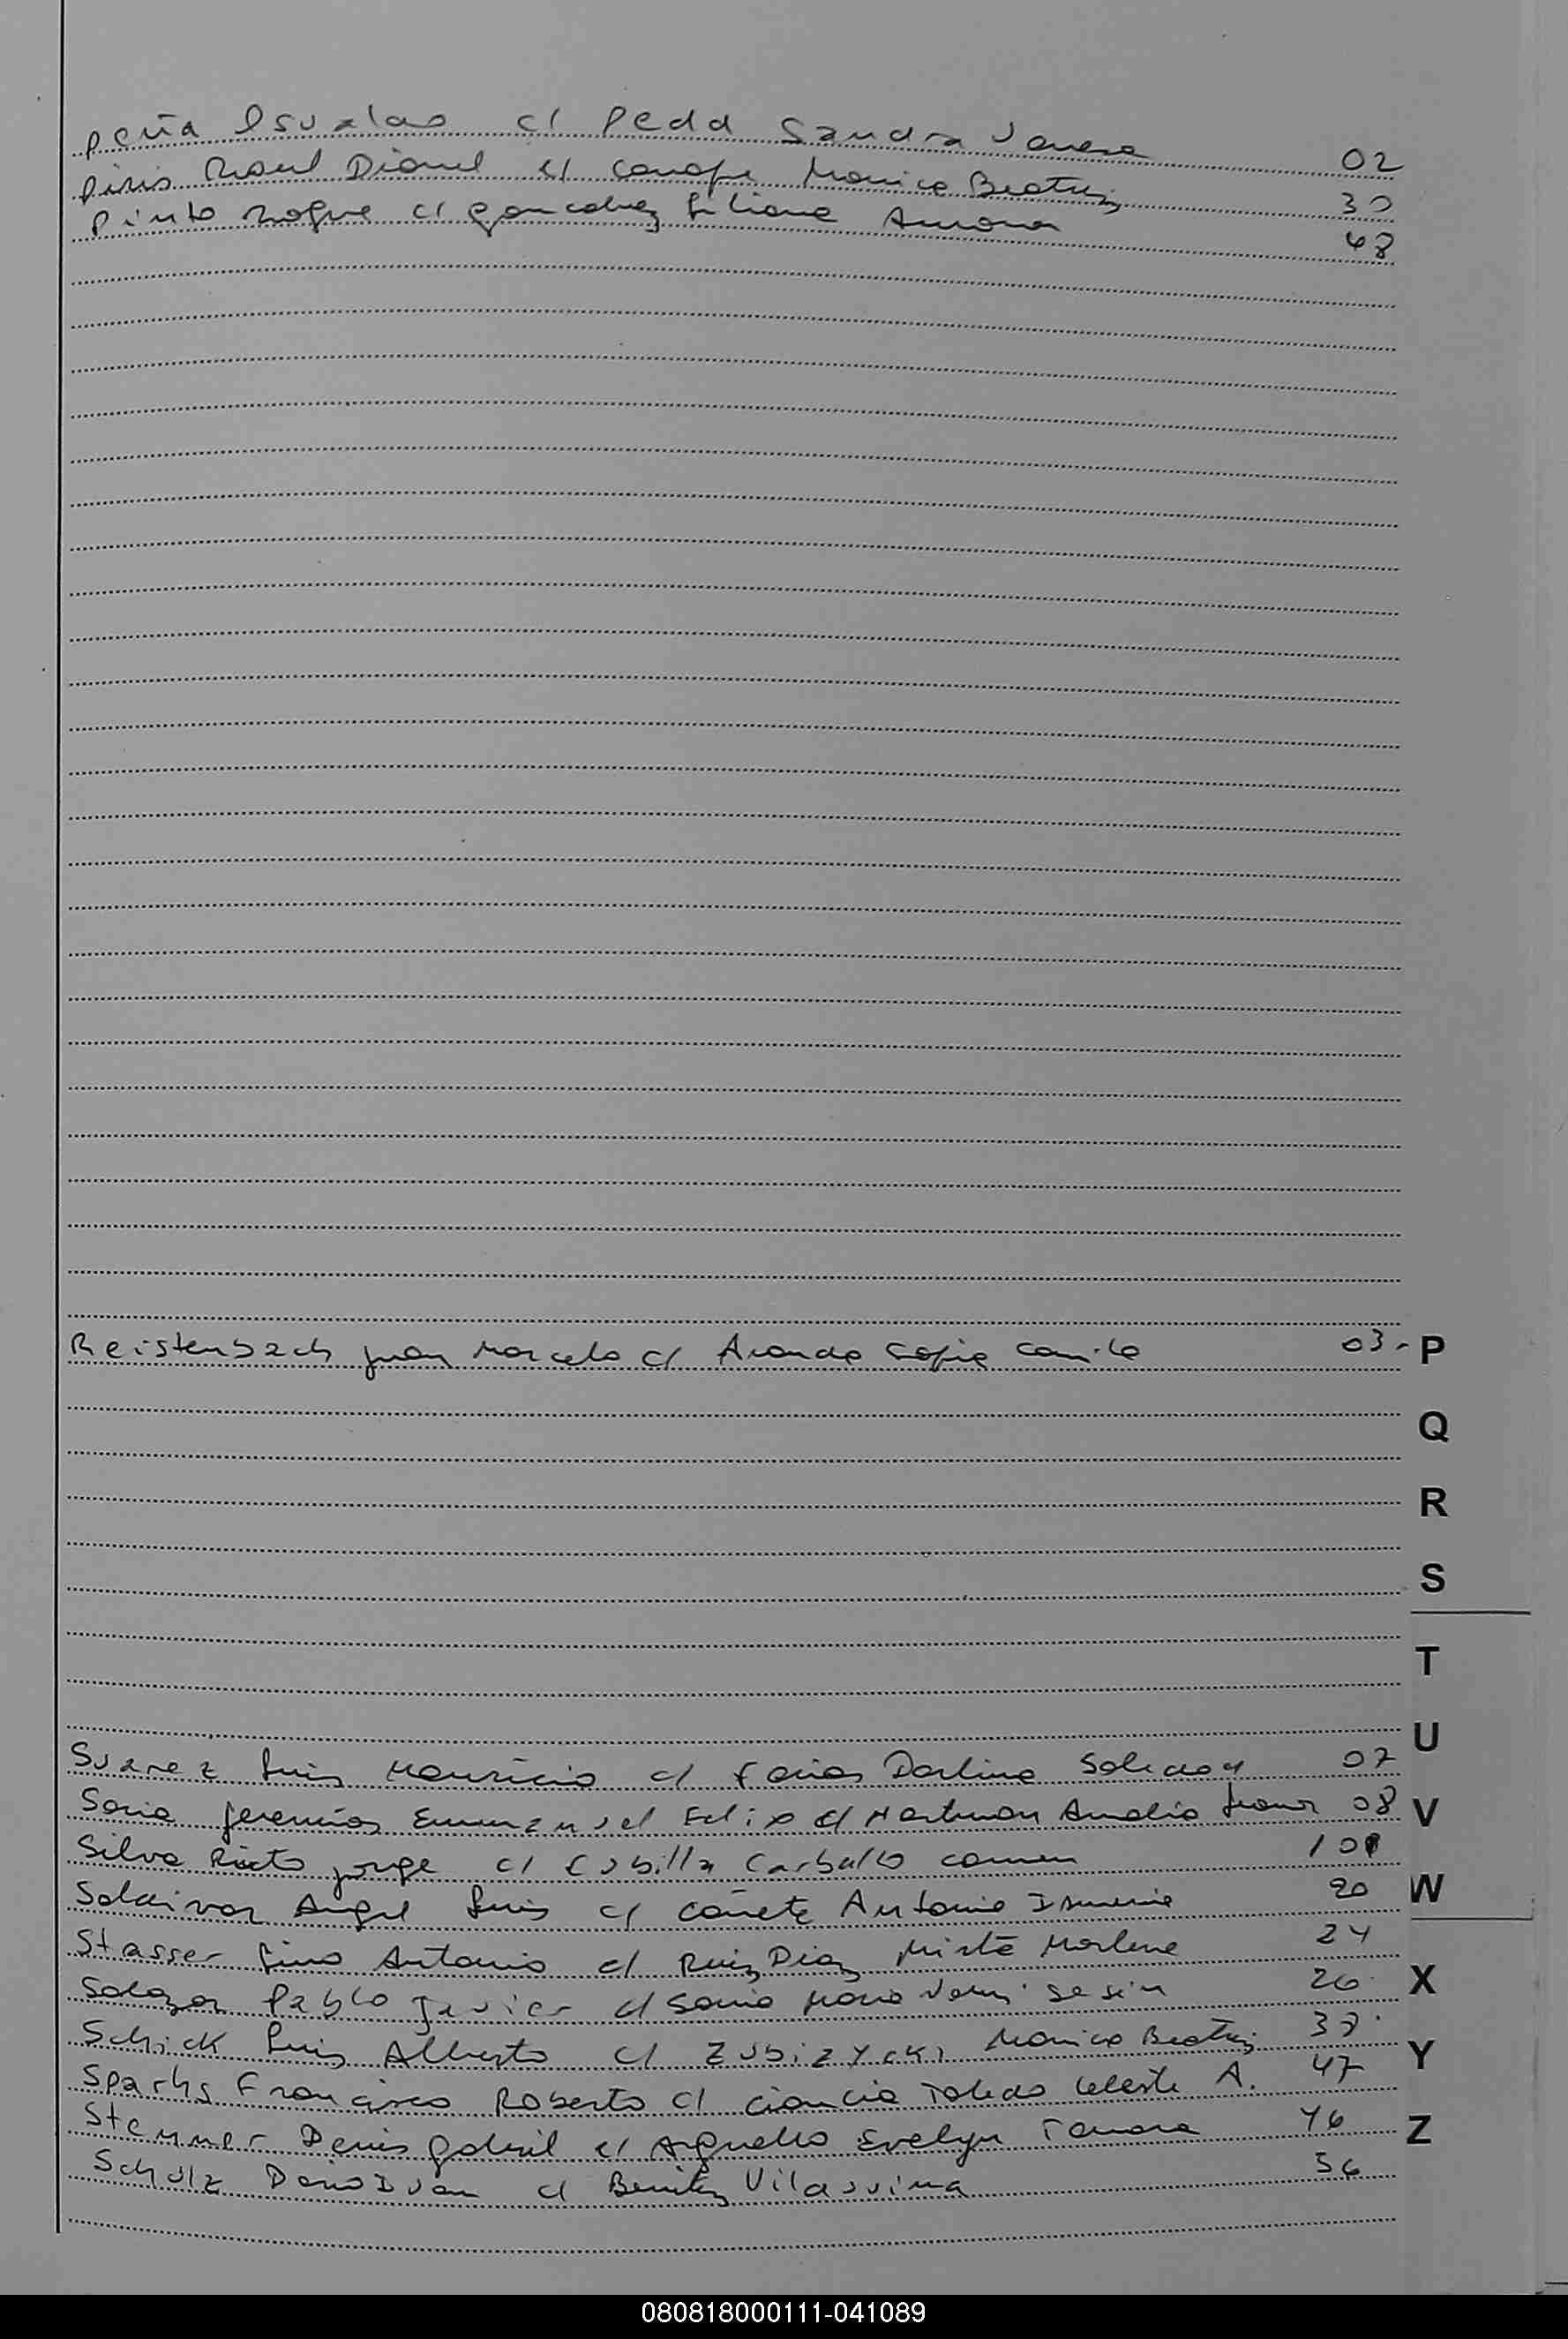 Peña Osvaldo c/ Pedd Sandra Vanesa 02
Piris Raul Dionel c/ Monica Beatriz 30
Pinto Roque c/ Goncalvez Liliana Aurora 48
Reistenbach Juan Marcelo c/ Aranda Sofia Camila 03- P
Q
R
S
T
U
Suarez Luis Mauricio c/ Farias Darlina Soledad 07
Soria Jeremias Emmanuel Felix c/ Hartman Amalia 08 V
Silva Jorge c/ Cubilla Carballo Carmen 101
Saldivar Angel Luis c/ Cañete Antonia Ismenia 20 W
Stasser Lino Antonio c/ Ruiz Diaz Mirta Marlene 24
Salazar Pablo Javier c/ Soria Maria 26 X
Schick Luis Alberto c/ Zubizycki Monica Beatriz 37
Sparhs Francisco Roberto c/ Ciancia Toledo Celeste A. 47 Y
Stemmer Denis Gabriel c/ Arguello Evelyn Tamara 46 Z
Schulz Dario Ivan c/ Benitez Vilassima 56
080818000111-041089